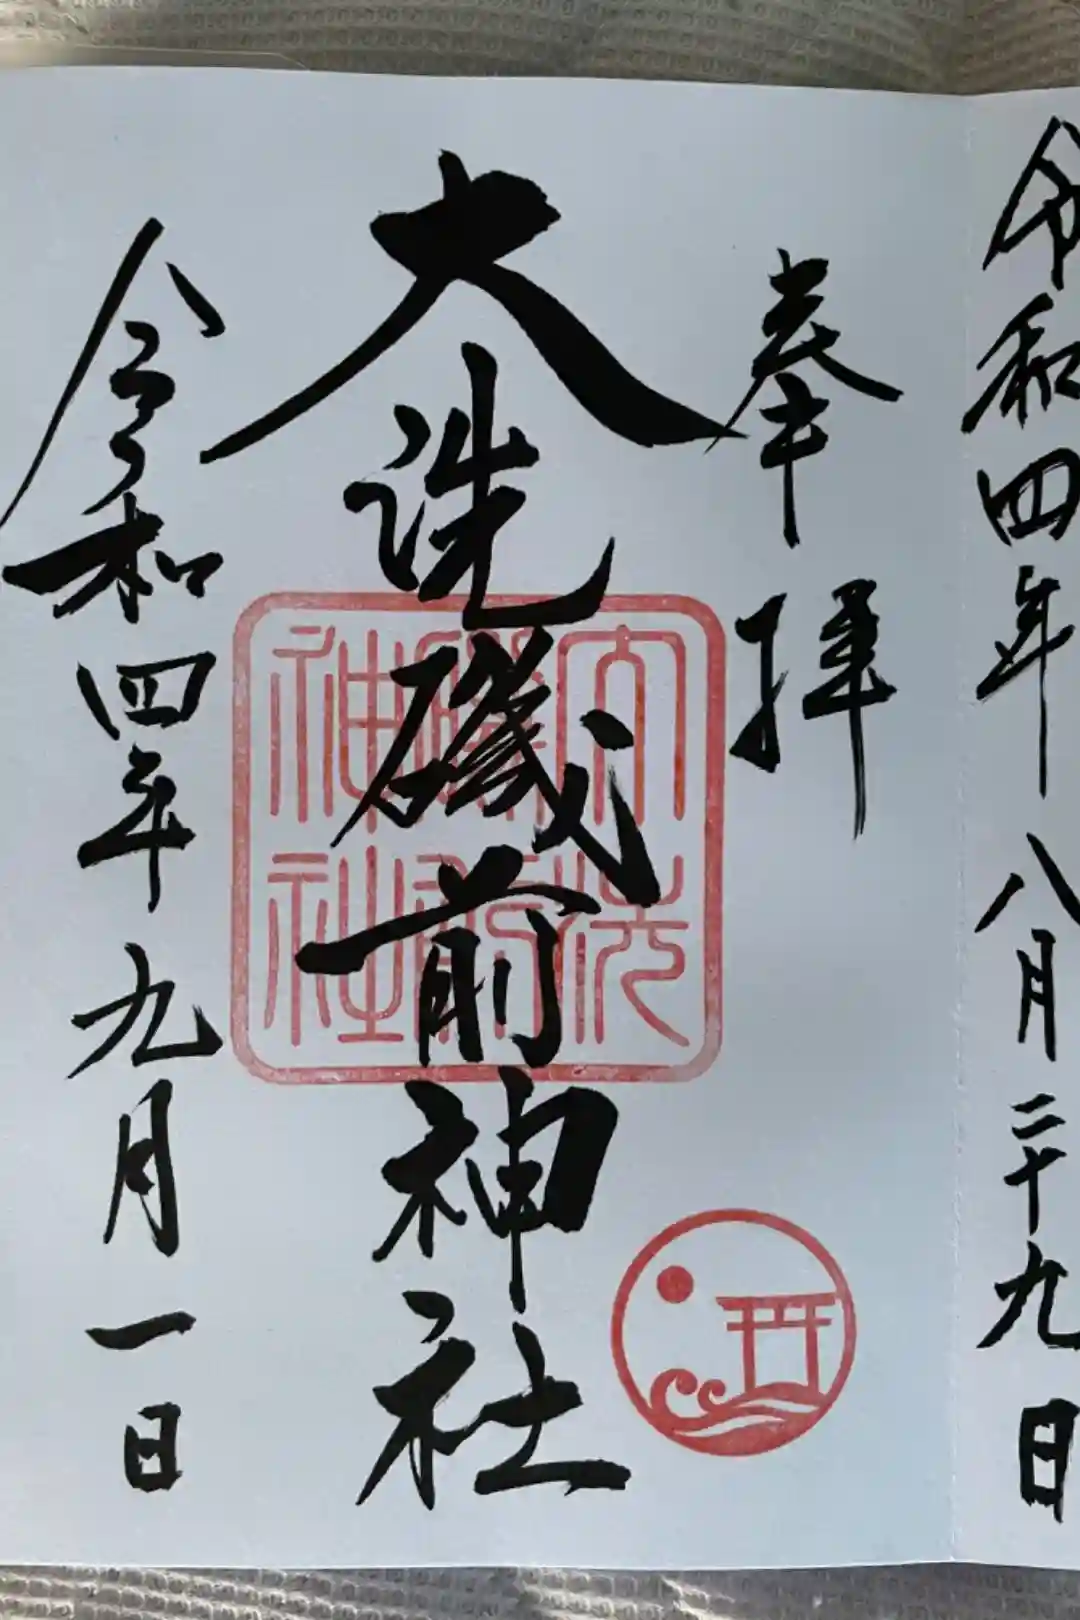 令和四年八月二十九日
奉拝
大洗磯前神社
令和四年九月一日
大洗
磯前
神社